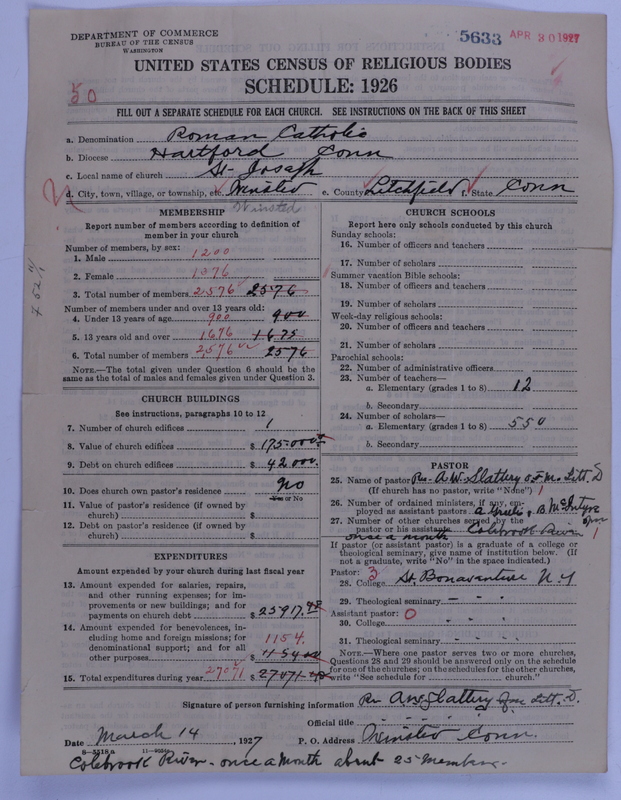 DEPARTMENT OF COMMERCE
BUREAU OF THE CENSUS
WASHINGTON
5633 APR 30 1927
UNITED STATES CENSUS OF RELIGIOUS BODIES
SCHEDULE: 1926
50
FILL OUT A SEPARATE SCHEDULE FOR EACH CHURCH. SEE INSTRUCTIONS ON THE BACK OF THIS SHEET
a. Denomination Roman Catholic
b. Diocese Hartford Conn
c. Local name of church St. Joseph
d. City, town, village, or township, etc. Winsted e. County Litchfield f. State Conn
Winsted
MEMBERSHIP
Report number of members according to definition of
member in your church
Number of members, by sex:
1. Male 1200
2. Female 1376
3. Total number of members 2576 2576
Number of members under and over 13 years old:
4. Under 13 years of age 900 900
5. 13 years old and over 1676 1675
6. Total number of members 2576 2576
NOTE.—The total given under Question 6 should be
the same as total of males and females given under Question 3.
CHURCH BUILDINGS
See instructions, paragraphs 10 to 12
7. Number of church edifices 1
8. Value of church edifices $ 175.000
9. Debt on church edifices $ 42000.
10. Does church own pastor's residence? No
Yes or No
11. Value of pastor's residence (if owned by
church) $
12. Debt on pastor's residence (if owned by
church) $
EXPENDITURES
Amount expended by your church during last fiscal year
13. Amount expended for salaries, repairs,
and other running expenses; for im-
provements or new buildings; and for
payments on church debt $ 25917.48
14. Amount expended for benevolences, in-
cluding home and foreign missions; for
denominational support; and for all
other purposes 1154. $ 1154 00
15. Total expenditures during year 27071 $ 27071.48
CHURCH SCHOOLS
Report here only schools conducted by this church
Sunday schools:
16. Number of officers and teachers
17. Number of scholars
Summer vacation Bible schools:
18. Number of officers and teachers
19. Number of scholars
Week-day religious schools:
20. Number of officers and teachers
21. Number of scholars
Parochial schools:
22. Number of administrative officers
23. Number of teachers—
a. Elementary (grades 1 to 8) 12
b. Secondary
24. Number of scholars—
a. Elementary (grades 1 to 8) 550
b. Secondary
PASTOR
25. Name of pastor Rev. A.W. Slattery O.F.M. Litt. D
(If church has no pastor, write "None") 1
26. Number of ordained ministers, if any, em-
ployed as assistant pastors B. McIntyre
27. Number of other churches served by the
pastor or his assistants Colebrook River 1
once a month
If pastor (or assistant pastor) is a graduate of a college or
theological seminary, give name of institution below. (If
not a graduate, write "No" in the space indicated.)
Pastor: 3
28. College St. Bonaventure N.Y
29. Theological seminary
Assistant pastor: 0
30. College
31. Theological seminary
NOTE.—Where one pastor serves two or more churches,
Questions 28 and 29 should be answered only on the schedule
for one of the churches; on the schedules for the other churches,
write "See schedule for church."
Signature of person furnishing information Rev A.W. Slattery ofm Litt. D.
Official title
Date March 14, 1927 P. O. Address Winsted Conn.
8—5518a
Colebrook River - once a month about 25 members.